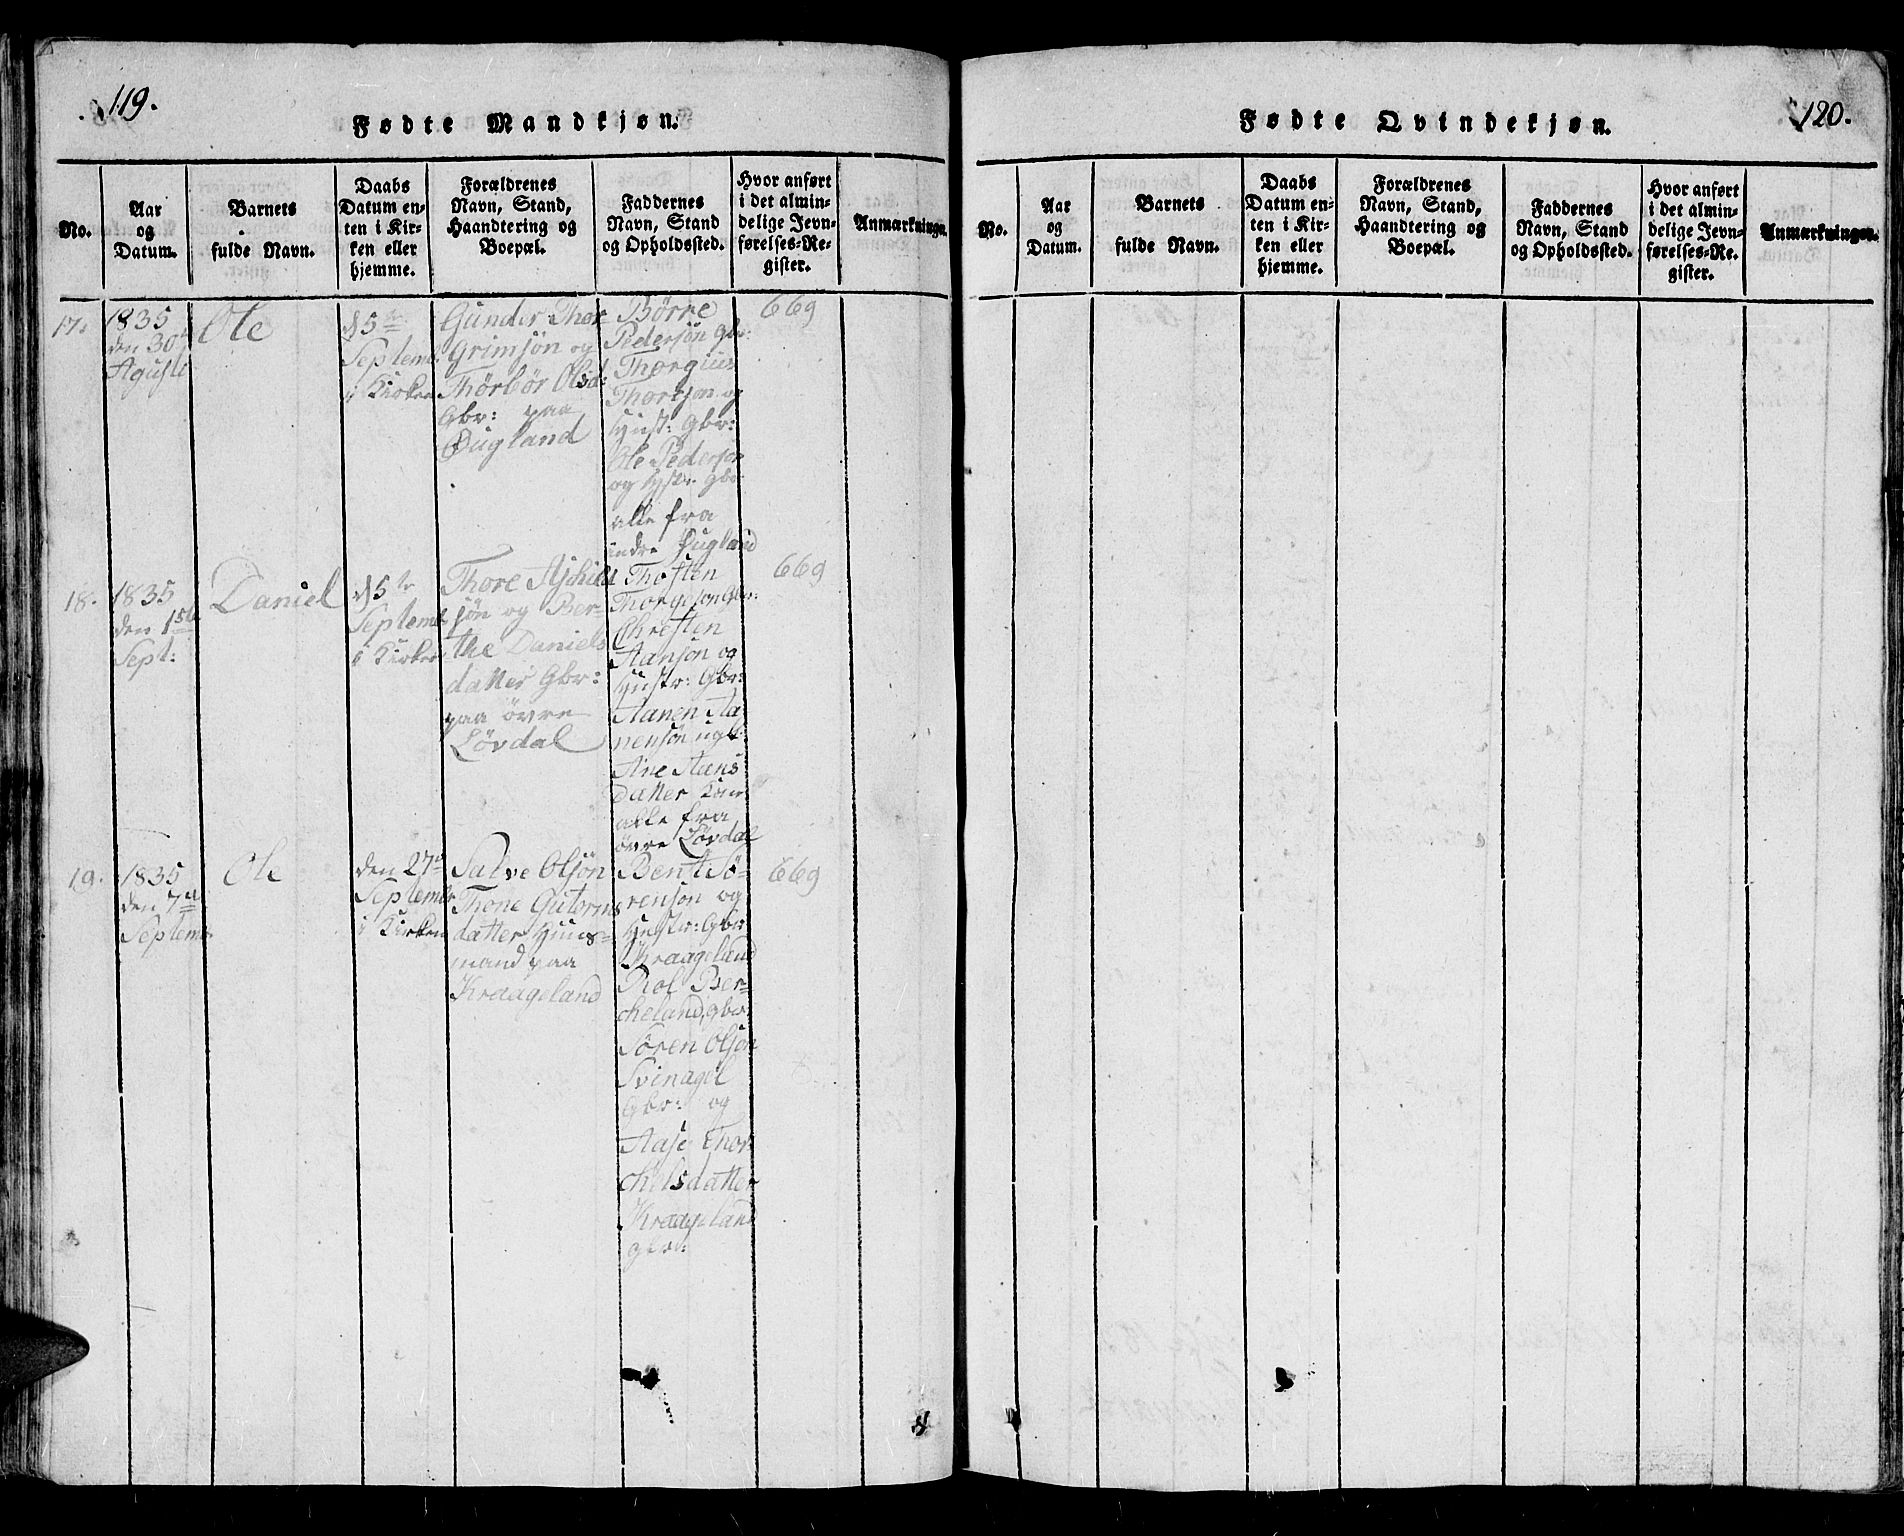 119.
Fødte Mandkjøn.
No.
Aar
og
Datum.
Barnets
fulde Navn.
Daabs
Datum en-
ten i Kir-
ken eller
hjemme.
Forældrenes
Navn, Stand,
Haandtering og
Boepæl.
Faddernes
Navn, Stand
og Opholdssted.
Hvor anført
i det almin-
delige Jevn-
førelses-Re-
gister.
Anmærkninger.
17.
1835
den 30te
Agusti
Ole
15te
Septembr
i Kirken
Gunder Thor
Grimsøn og
Thørbør Olsd:
Gbr: paa
Øugland
Børre
Pedersøn Gbr:
Thorgius
Thorsøn og
Hust: Gbr:
Ole Pedersøn
og Hstr Gbr
alle fra
indre Øugland
669
18.
1835
den 1ste
Sept:
Daniel
15te
Septembr
i Kirken
Thore Ajchild
søn og Ber-
the Daniels
datter Gbr:
paa øvre
Løvdal
Thosten
Thorgesøn Gbr:
Chresten
Hansøn og
Hustr: Gbr:
Aanen Aa-
nensøn ugk:
Ane Hans
datter Kone
alle fra
øvre Løvdal
669
19.
1835
den 7da
Septembr
Ole
den 27de
Septembr
i Kirken
Salve Olsøn
Thone Gutorms
datter Huus-
mand paa
Kraageland
Bent Sö-
rensøn og
Hustr: Gbr
Kraageland
Rol Ber-
cheland, Gbr:
Søren Olsøn
Svinagel
Gbr: og
Aase Thor
chelsdatter
Kraageland
gbr:
669
120.
Fødte Qvindekjøn.
No.
Aar
og
Datum.
Barnets
fulde Navn.
Daabs
Datum en-
ten i Kir-
ken eller
hjemme.
Forældrenes
Navn, Stand,
Haandtering og
Boepæl.
Faddernes
Navn, Stand
og Opholdssted.
Hvor anført
i det almin-
delige Jevn-
førelses-Re-
gister.
Anmærkninger.